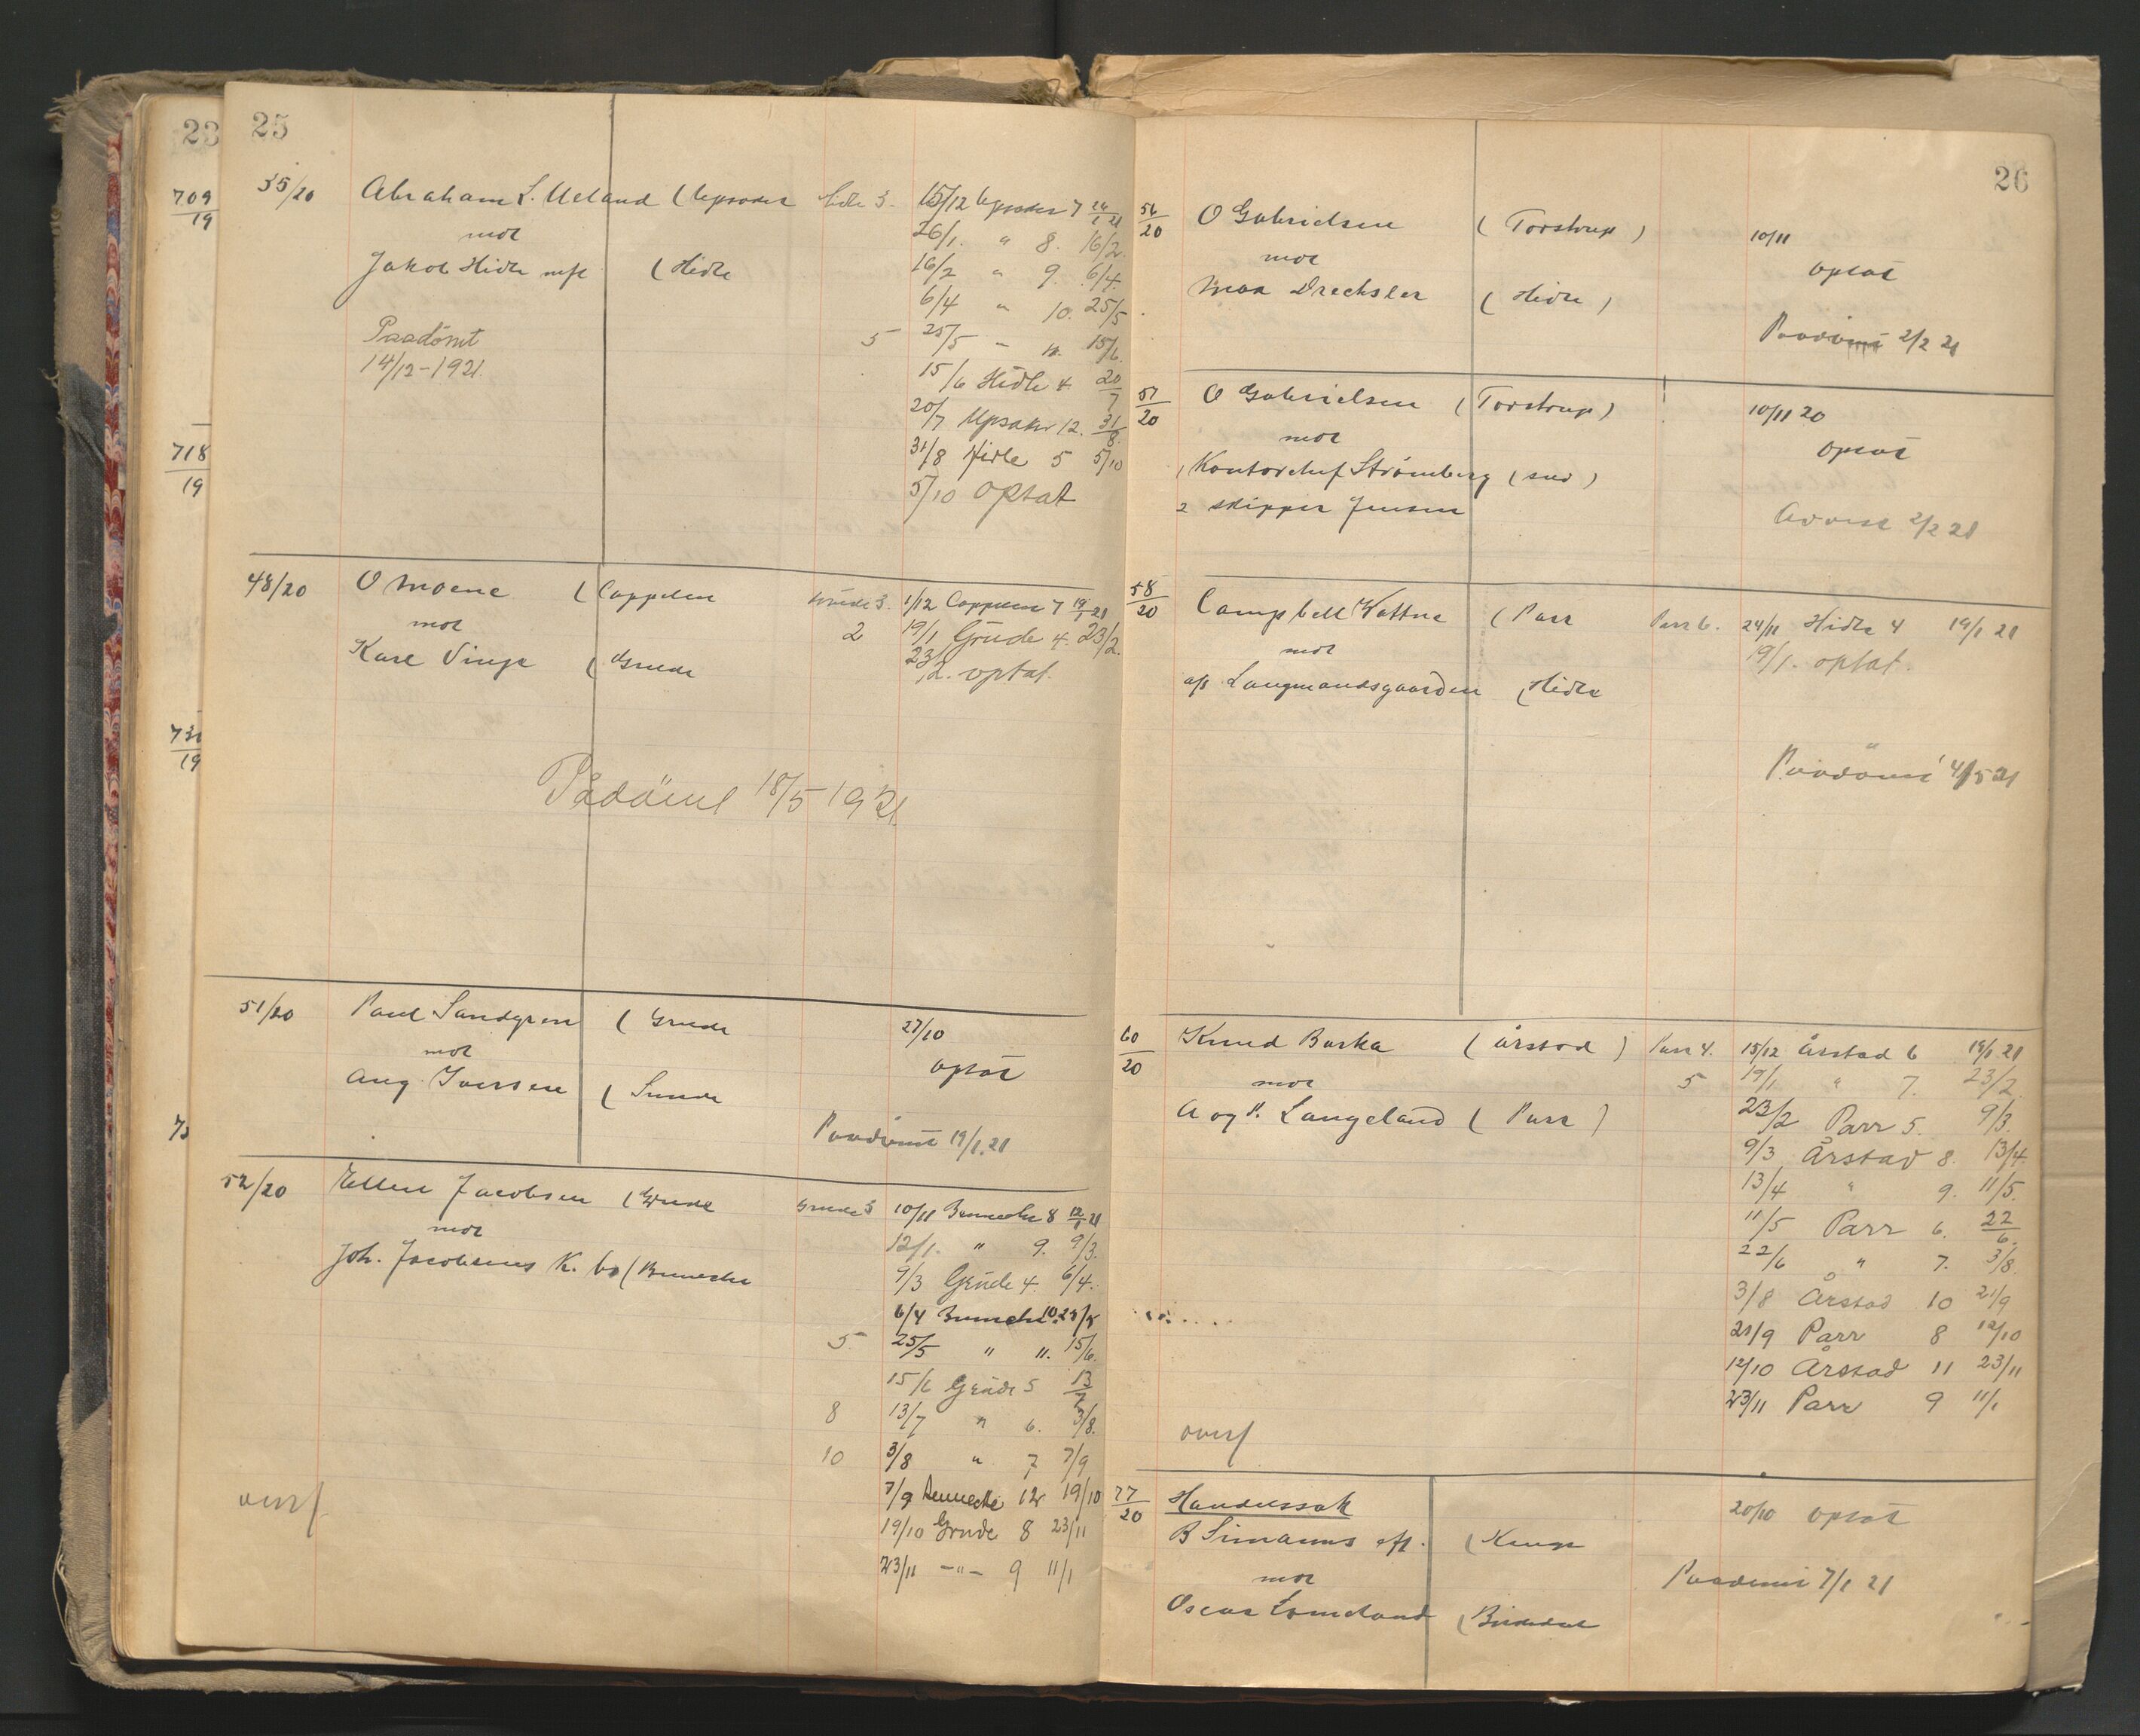 23
709
19
718
19
73
19
73
25
35/20 Abraham L. Ueland ( Upsader Hidle 3. 15/12 Upsader 7 26/1 21
mot 26/1. " 8. 16/2.
Jakob Hidle mfl ( Hidle 16/2 " 9. 6/4.
6/4 " 10. 25/5
Paadömt 5 25/5 " 11. 15/6.
14/12-1921. 15/6 Hidle 4. 20/7
20/7 Upsaker 12. 31/8.
31/8 Hidle 5 5/10
5/10 optat
48/20 O Moene ( Coppelen Grude 3. 1/12 Coppelen 7 19/1 21
mot 2 19/1 Grude 4. 23/2.
Karl Vinje ( Grude 23/2. optat.
Pådömt 18/5 1921.
51/20 Paul Sandgren ( Grude 27/10
mot optat
Aug. Iversen ( Sunde
Paadömt 19/1.21
52/20 Ellen Jacobsen ( Grude Grude 3 10/11 Bennecke 8 12/1 21
mot 12/1. " 9. 9/3.
Joh. Jacobsens K. bo ( Bennecke 9/3 Grude 4. 6/4.
6/4 Bennecke 10. 25/5
5. 25/5 " 11. 15/6.
15/6 Grude 5 13/7
8 13/7 " 6. 3/8.
10 3/8 " 7 7/9
7/9 Bennecke 12 19/10
overf 19/10 Grude 8 23/11
23/11 -"- 9 11/1
26
56/20 O Gabrielsen ( Torstrup ) 10/11
mot optat
Max Drechsler ( Hidle )
Paadömt 2/2 21
57/20 O Gabrielsen ( Torstrup ) 10/11 20
mot optat
1 Kontorchef Strømberg ( svd )
2 skipper Jensen Avvist 2/2 21
58/20 Campbell Wattne ( Parr Parr 6. 24/11 Hidle 4 19/1 21
mot 19/1. optat.
a/s Langmandsgaarden ( Hidle
Paadömt 4/5 21
60/20 Knud Barka ( Årstad ) Parr 4. 15/12 Årstad 6 19/1 21
mot 5 19/1 " 7. 23/2
A og P. Langeland ( Parr ) 23/2 Parr 5. 9/3.
9/3 Årstad 8. 13/4.
13/4 " 9. 11/5.
11/5 Parr 6. 22/6.
22/6 " 7. 3/8.
3/8 Årstad 10 21/9
21/9 Parr 8 12/10
12/10 Årstad 11 23/11
23/11 Parr 9 11/1
overf
77/20 Handelssak 20/10 optat
B Simanns eft. ( Kempe
mot Paadömt 7/1 21
Oscar Lomeland ( Birkedal